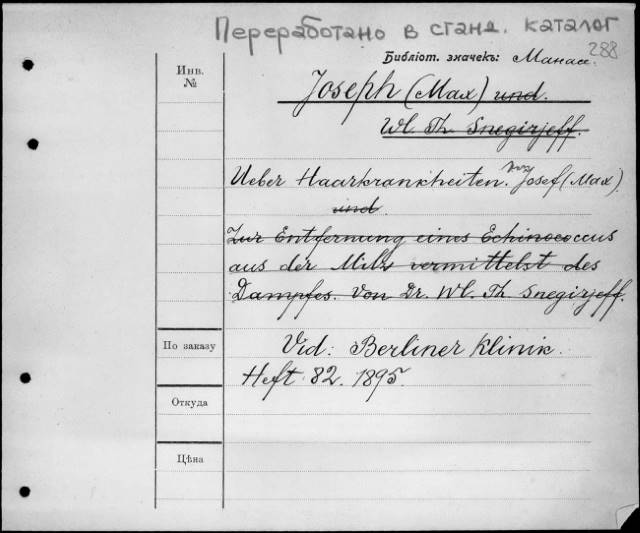 Переработано в станд. каталог
288
Библіот. значекъ: Манасс.
Инв.
№
Joseph (Max) und.
Wl. Th. Snegirjeff.
Ueber Haarkrankheiten. von Josef (Max)
und
Zur Entfernung eines Echinococcus
aus der Milz vermittelst des
Dampfes. Von Dr. Wl. Th. Snegirjeff.
По заказу
Vid: Berliner Klinik.
Heft. 82. 1895.
Откуда
Цѣна